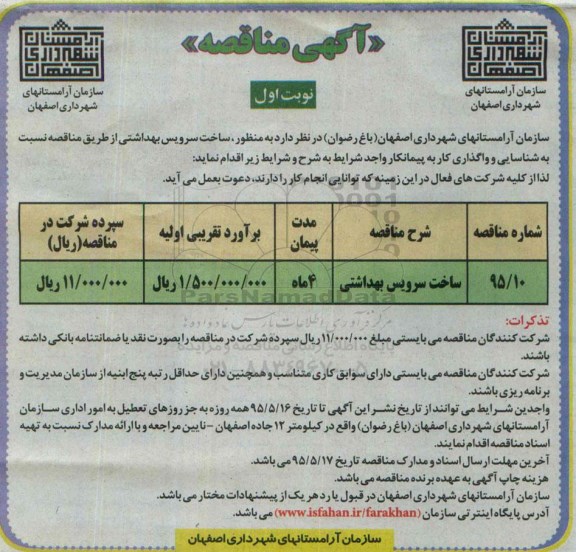 «آگهی مناقصه»
نوبت اول
سازمان آرامستانهای
شهرداری اصفهان
سازمان آرامستانهای
شهرداری اصفهان
سازمان آرامستانهای شهرداری اصفهان(باغ رضوان) در نظر دارد به منظور، ساخت سرویس بهداشتی از طریق مناقصه نسبت
به شناسایی و واگذاری کار به پیمانکار واجد شرایط به شرح و شرایط زیر اقدام نماید:
لذا از کلیه شرکت های فعال در این زمینه که توانایی انجام کار را دارند، دعوت بعمل می آید.
شماره مناقصه شرح مناقصه مدت پیمان برآورد تقریبی اولیه سپرده شرکت در مناقصه(ریال)
۹۵/۱۰ ساخت سرویس بهداشتی ۴ماه ۱/۵۰۰/۰۰۰/۰۰۰ ریال ۱۱/۰۰۰/۰۰۰ ریال
ParsNamadData
تذکرات:
شرکت کنندگان مناقصه می بایستی مبلغ ۱۱/۰۰۰/۰۰۰ ریال سپرده شرکت در مناقصه را بصورت نقد یا ضمانتنامه بانکی داشته
باشند.
شرکت کنندگان مناقصه می بایستی دارای سوابق کاری متناسب و همچنین دارای حداقل رتبه پنج ابنیه از سازمان مدیریت و
برنامه ریزی باشند.
واجدین شرایط می توانند از تاریخ نشر این آگهی تا تاریخ ۹۵/۵/۱۶ همه روزه به جز روزهای تعطیل به امور اداری سازمان
آرامستانهای شهرداری اصفهان (باغ رضوان) واقع در کیلومتر ۱۲ جاده اصفهان - نایین مراجعه و با ارائه مدارک نسبت به تهیه
اسناد مناقصه اقدام نمایند.
آخرین مهلت ارسال اسناد و مدارک مناقصه تاریخ ۹۵/۵/۱۷ می باشد.
هزینه چاپ آگهی به عهده برنده مناقصه می باشد.
سازمان آرامستانهای شهرداری اصفهان در قبول یا رد هر یک از پیشنهادات مختار می باشد.
آدرس پایگاه اینترنتی سازمان (www.isfahan.ir/farakhan) می باشد.
سازمان آرامستانهای شهرداری اصفهان